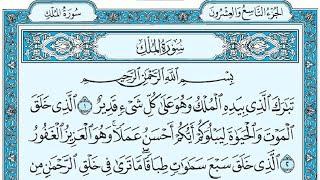 سُورَةُ المُلْكِ
الجُزْءُ التَّاسِعُ وَالعِشْرُونَ
سُورَةُ المُلْكِ
بِسْمِ اللَّهِ الرَّحْمَٰنِ الرَّحِيمِ
تَبَٰرَكَ ٱلَّذِى بِيَدِهِ ٱلْمُلْكُ وَهُوَ عَلَىٰ كُلِّ شَىْءٍ قَدِيرٌ ١ ٱلَّذِى خَلَقَ
ٱلْمَوْتَ وَٱلْحَيَوٰةَ لِيَبْلُوَكُمْ أَيُّكُمْ أَحْسَنُ عَمَلًا وَهُوَ ٱلْعَزِيزُ ٱلْغَفُورُ ٢
ٱلَّذِى خَلَقَ سَبْعَ سَمَٰوَٰتٍ طِبَاقًا مَّا تَرَىٰ فِى خَلْقِ ٱلرَّحْمَٰنِ مِن